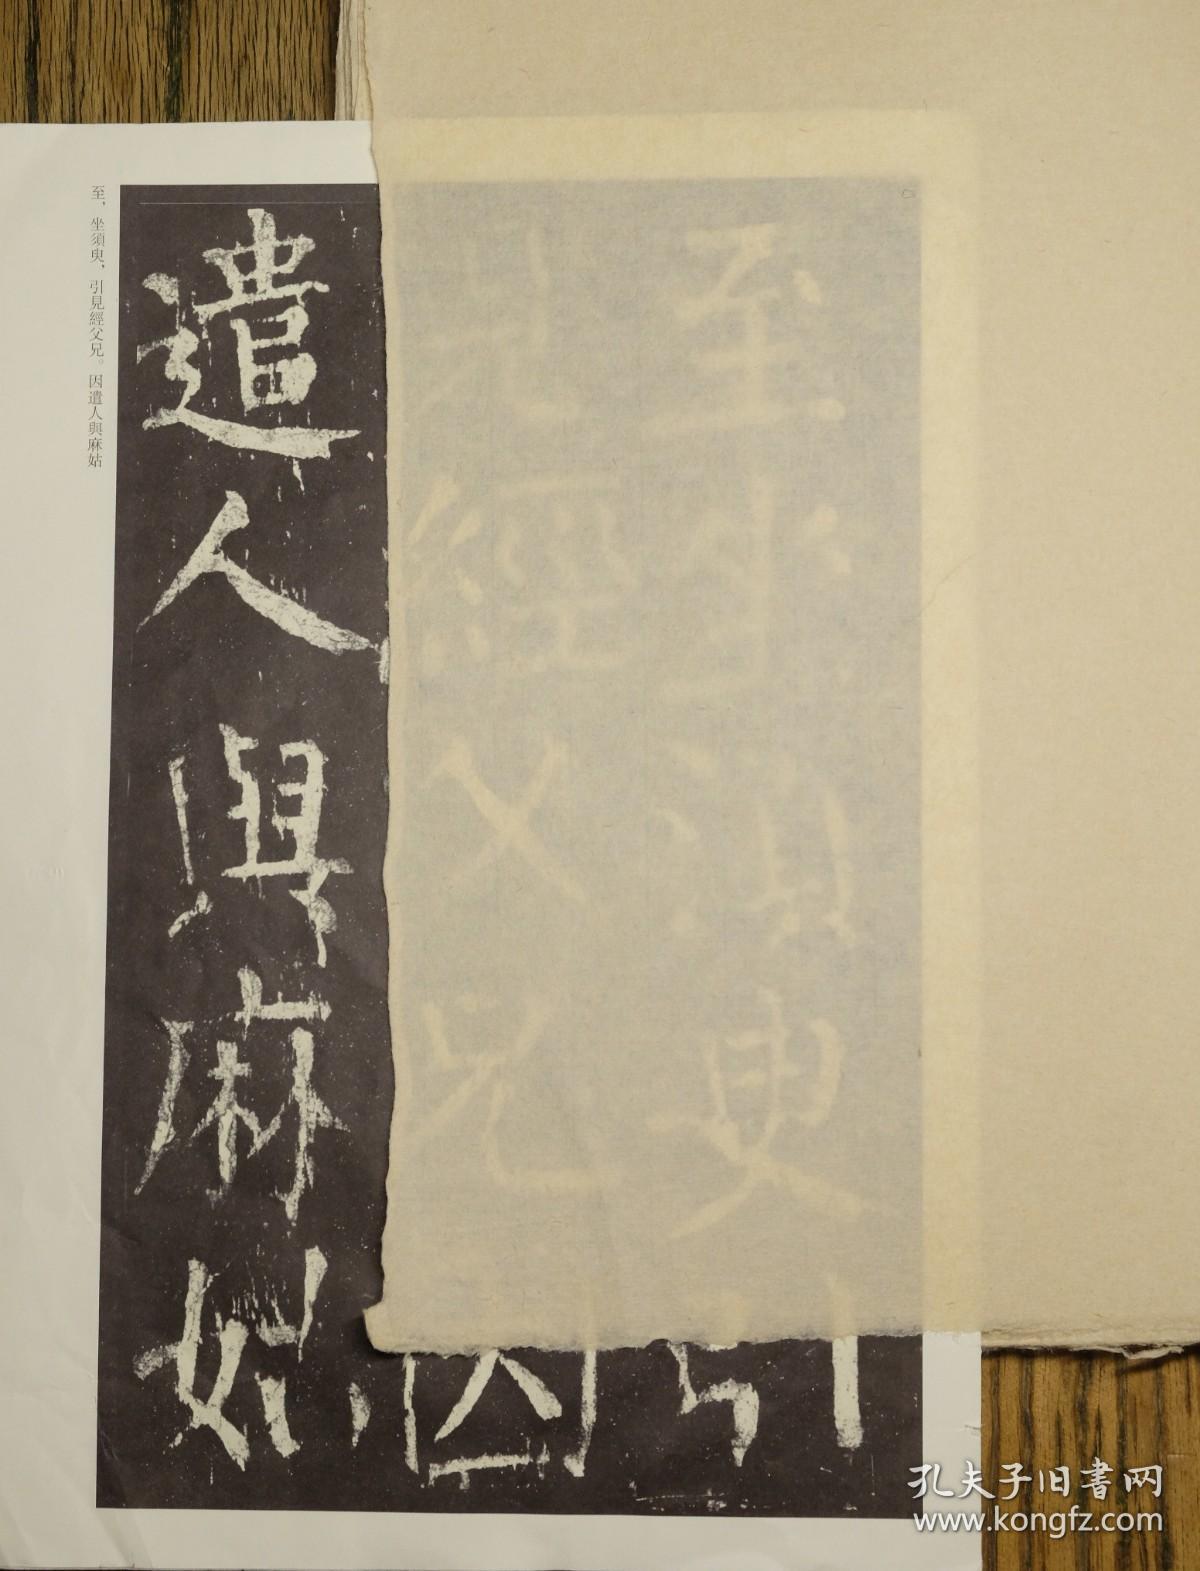 至坐須臾引
見經父兄因
遣人與麻姑
至，坐須臾，引見經父兄。因遣人與麻姑
孔夫子旧書网
www.kongfz.com